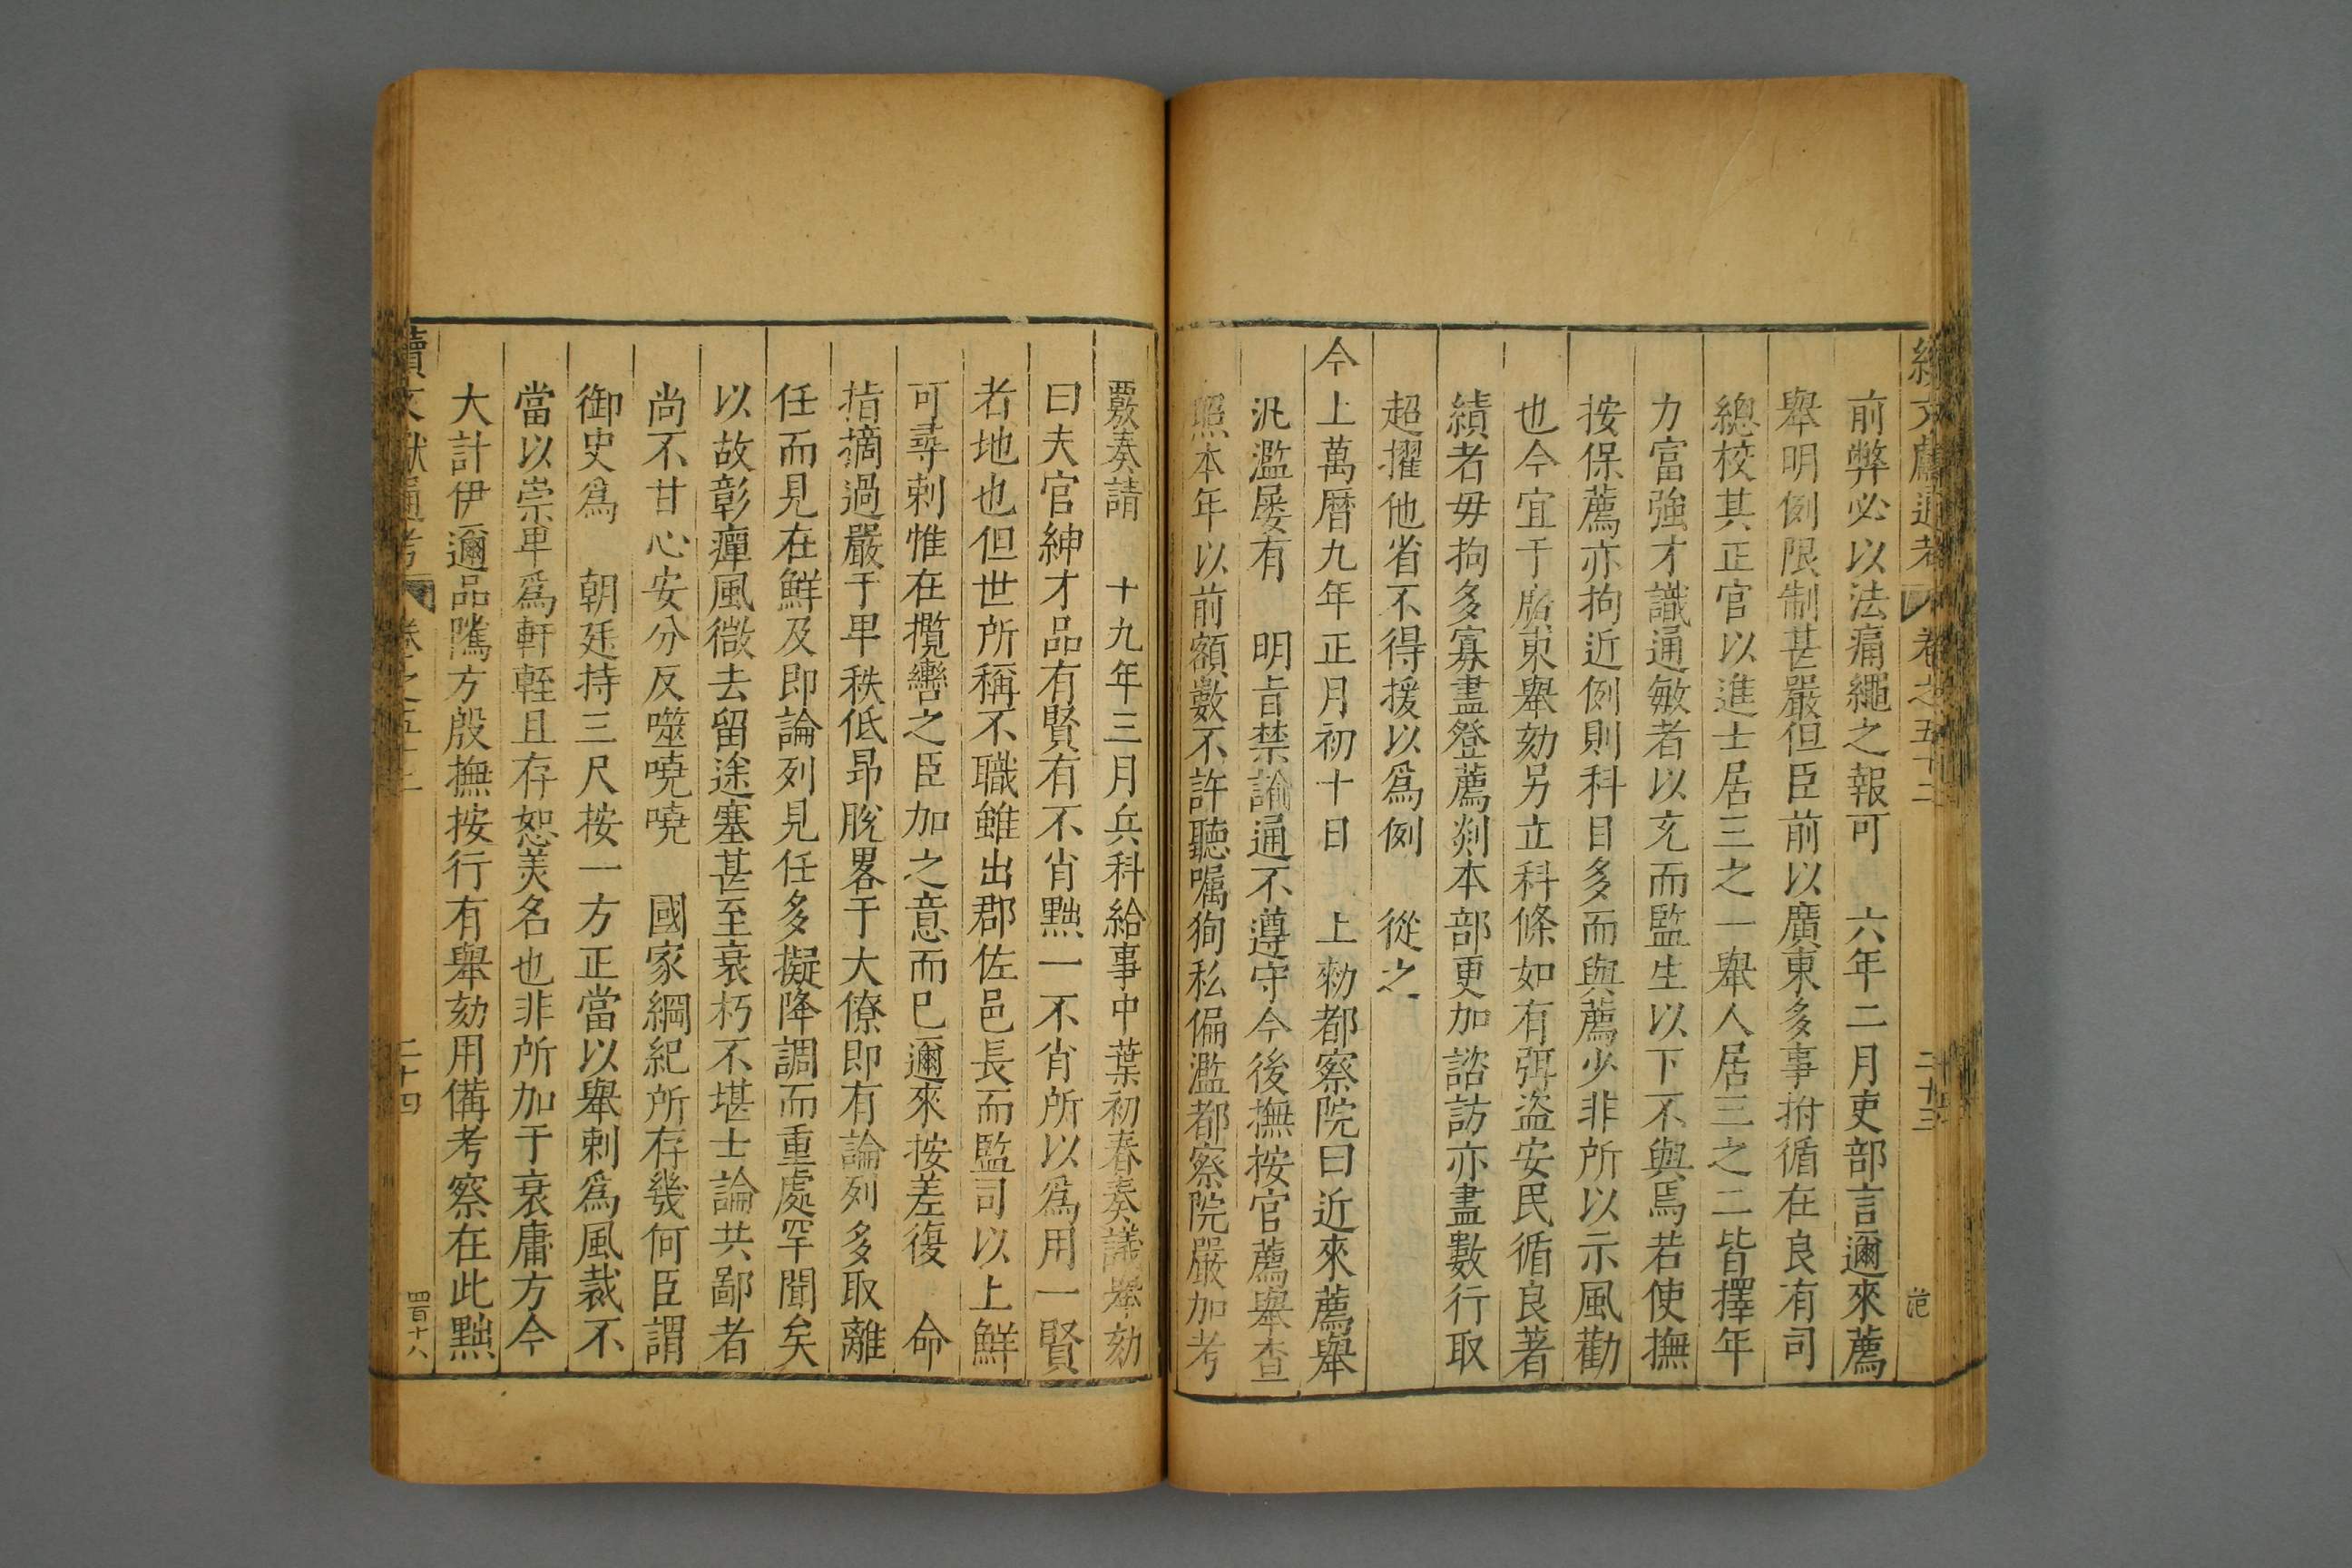 續文獻通考 卷之五十二 二十三 范
前弊必以法痛繩之報可 六年二月吏部言邇來薦
舉明例限制甚嚴但臣前以廣東多事拊循在良有司
總校其正官以進士居三之一舉人居三之二皆擇年
力富強才識通敏者以充而監生以下不與焉若使撫
按保薦亦拘近例則科目多而與薦少非所以示風勸
也今宜于廣東舉劾另立科條如有弭盗安民循良著
績者毋拘多寡盡登薦剡本部更加諮訪亦盡數行取
超擢他省不得援以爲例 從之
今上萬曆九年正月初十日 上勑都察院曰近來薦舉
汎濫屡有 明旨禁諭通不遵守今後撫按官薦舉查
照本年以前額數不許聽囑狥私偏濫都察院嚴加考
覈奏請 十九年三月兵科給事中葉初春奏議舉劾
曰夫官紳才品有賢有不肖黜一不肖所以爲用一賢
者地也但世所稱不職雖出郡佐邑長而監司以上鮮
可尋剌惟在攬轡之臣加之意而已邇來按差復 命
指摘過嚴于卑秩低昂脫畧于大僚即有論列多取離
任而見在鮮及即論列見任多擬降調而重處罕聞矣
以故彰癉風微去留途塞甚至衰朽不堪士論共鄙者
尚不甘心安分反噬嘵嘵 國家綱紀所存幾何臣謂
御史爲 朝廷持三尺按一方正當以舉剌爲風裁不
當以崇卑爲軒輊且存恕美名也非所加于衰庸方今
大計伊邇品隲方殷撫按行有舉劾用備考察在此黜
續文獻通考 卷之五十二 二十四 四百十八